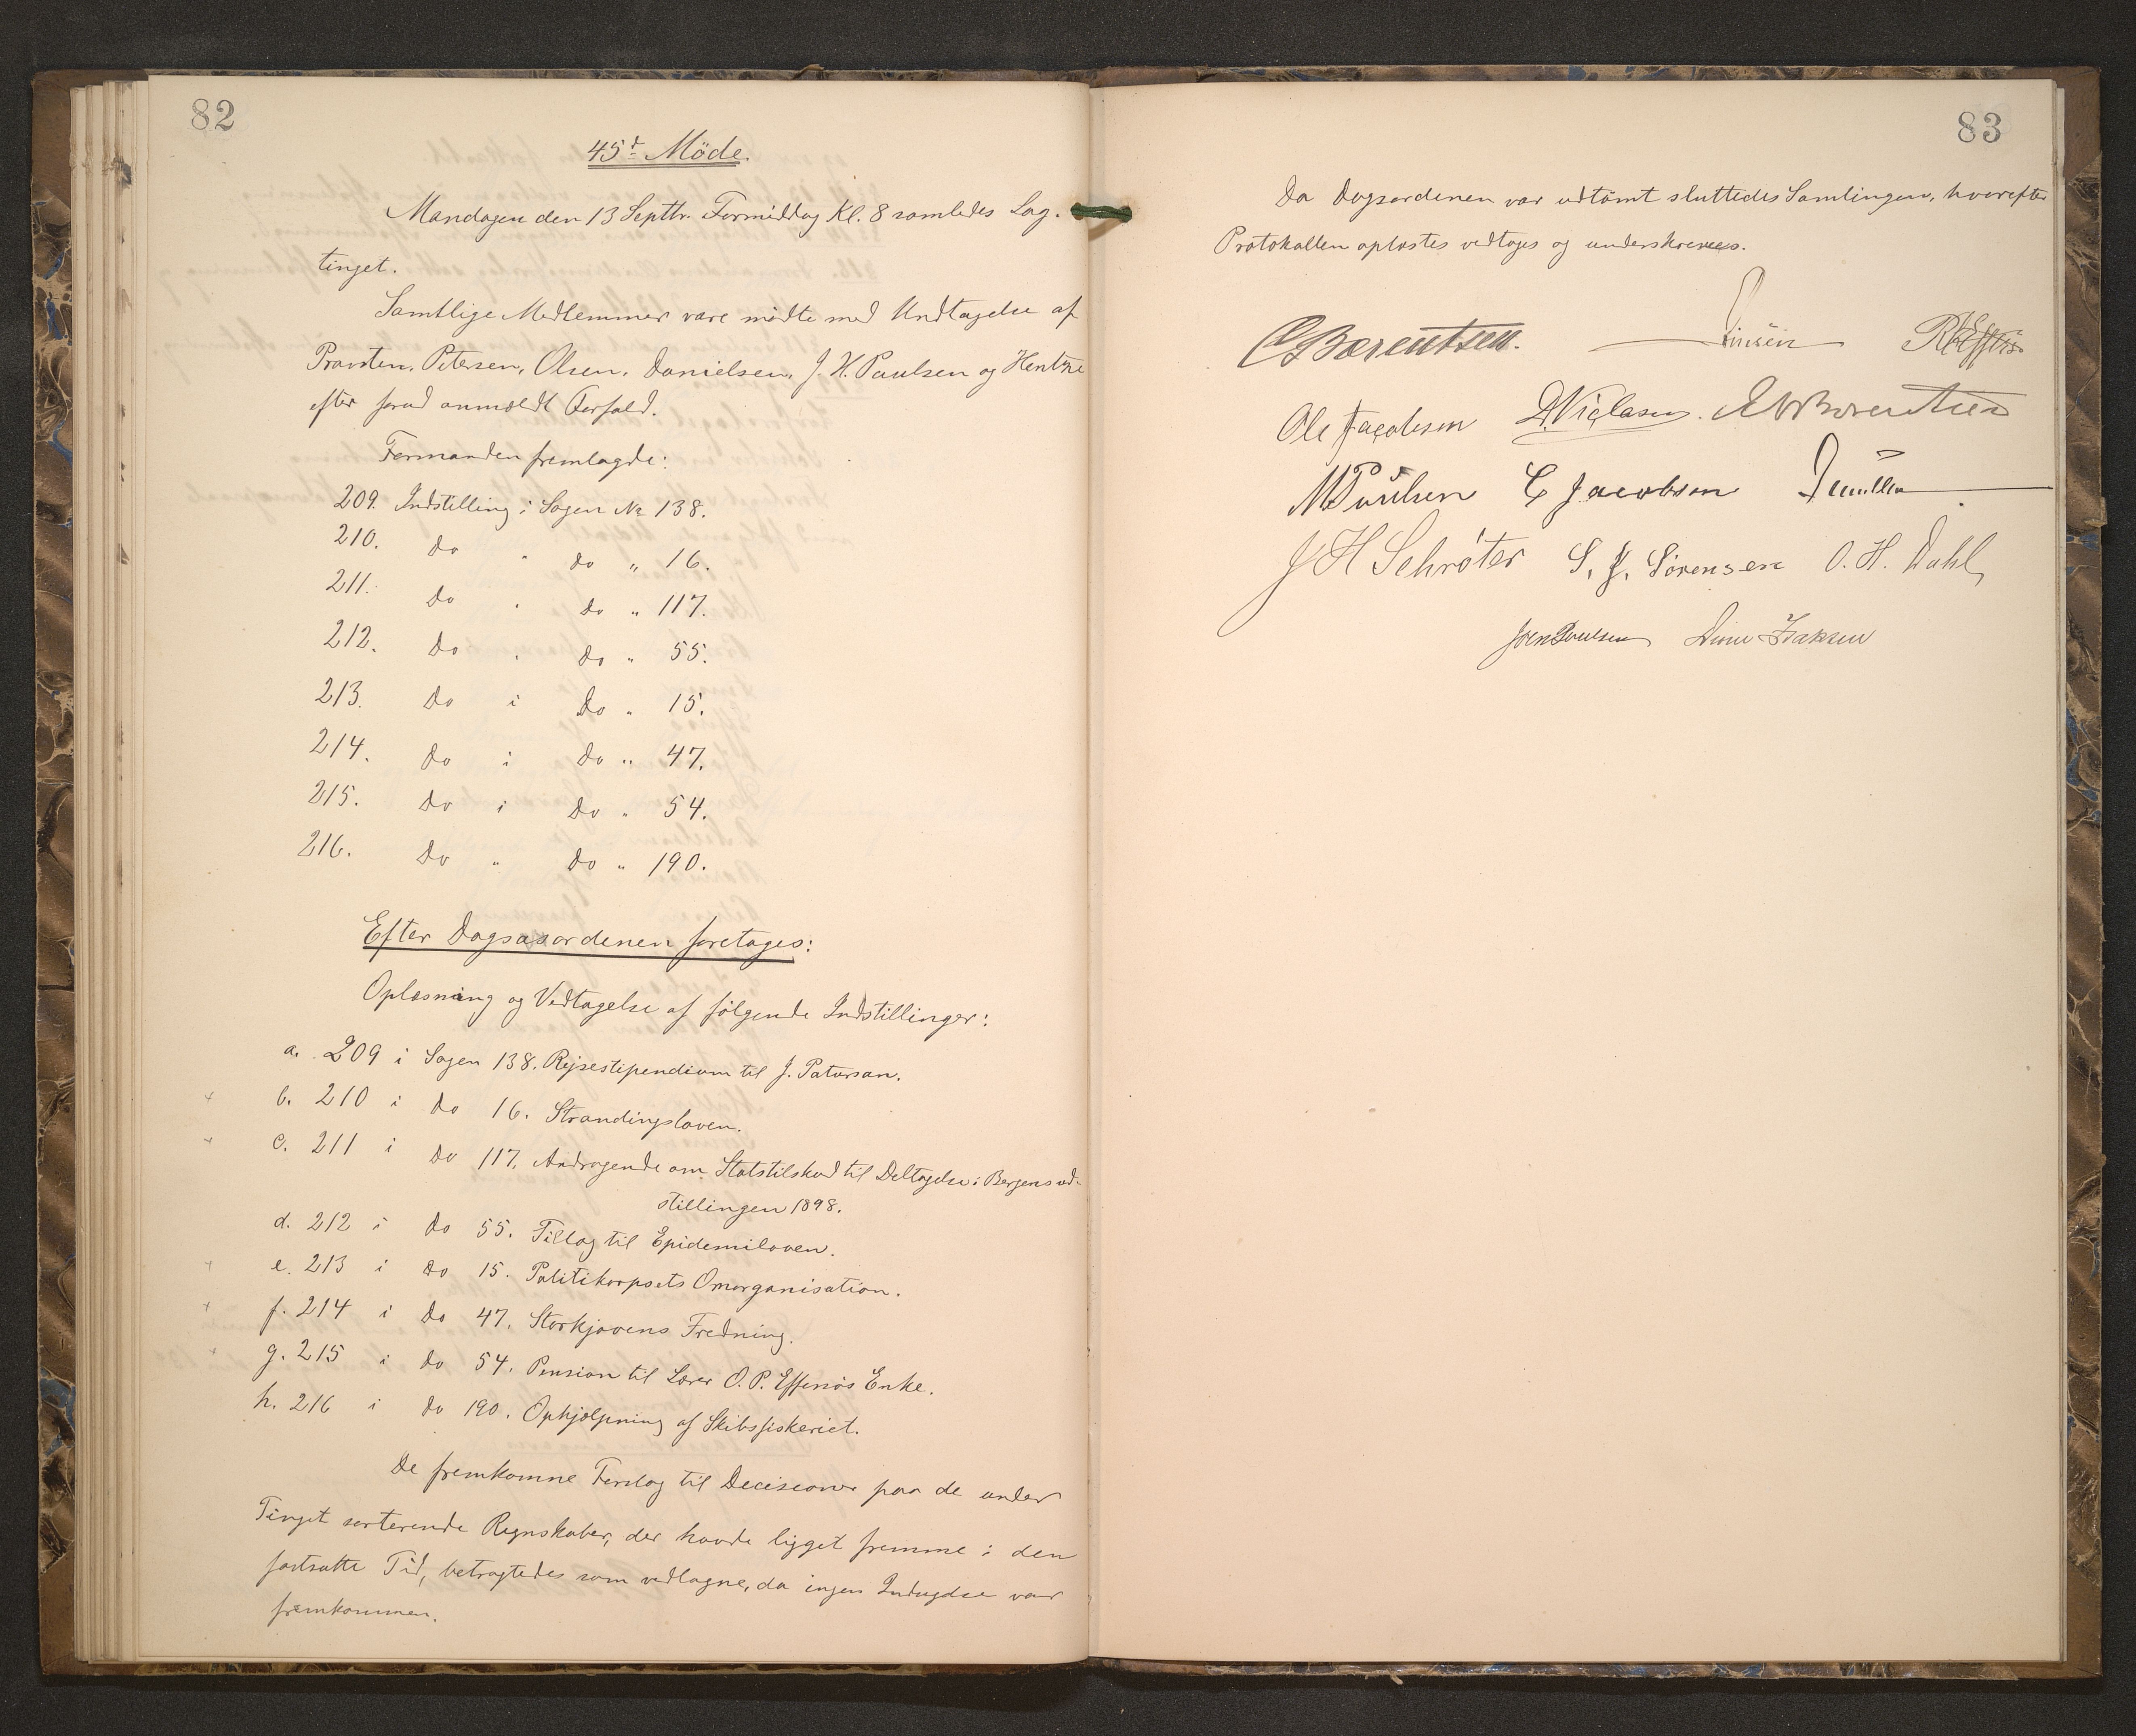 82
45<sup>d</sup> Möde.
Mandagen den 13 Septbr. Formiddag Kl. 8 samledes Lag-
tinget.
Samtlige Medlemmer vare mödte med Undtagelse af
Provsten, Petersen, Olsen, Danielsen, J. H. Poulsen og Hentze
efter forud anmeldt Forfald.
Formanden fremlagde:
209. Indstilling i Sagen No 138.
210. do " do " 16.
211. do " do " 117.
212. do " do " 55.
213. do i do " 15.
214. do i do " 47.
215. do i do " 54.
216. do " do " 190.
Efter Dagsordenen foretages:
Oplæsning og Vedtagelse af fölgende Indstillinger:
a. 209 i Sagen 138. Rejsestipendium til J. Patursson.
b. 210 i do 16. Strandingsloven.
c. 211 i do 117. Andragende om Statstilskud til Deltagelse i Bergensud-
stillingen 1898.
d. 212 i do 55. Tillæg til Epidemiloven.
e. 213 i do 15. Politikorpsets Omorganisation.
f. 214 i do 47. Storkjovens Fredning.
g. 215 i do 54. Pension til Lærer O. P. Effersös Enke.
h. 216 i do 190. Ophjælpning af Skibsfiskeriet.
De fremkomne Forslag til Decisioner paa de under
Tinget sorterende Regnskaber, der havde ligget fremme i den
fastsatte Tid, betragtedes som vedtagne, da ingen Indsigelse var
fremkommen.
83
Da Dagsordenen var udtömt sluttedes Samlingen, hvorefter
Protokollen oplæstes vedtoges og underskreves.
C Bærentsen. R Effersö
Ole Jacobsen D. Niclasen. E W Bærentsen
M Poulsen C Jacobsen
J H Schröter S. J. Sörensen O. H. Dahl
Joen Poulsen Dime Isaksen